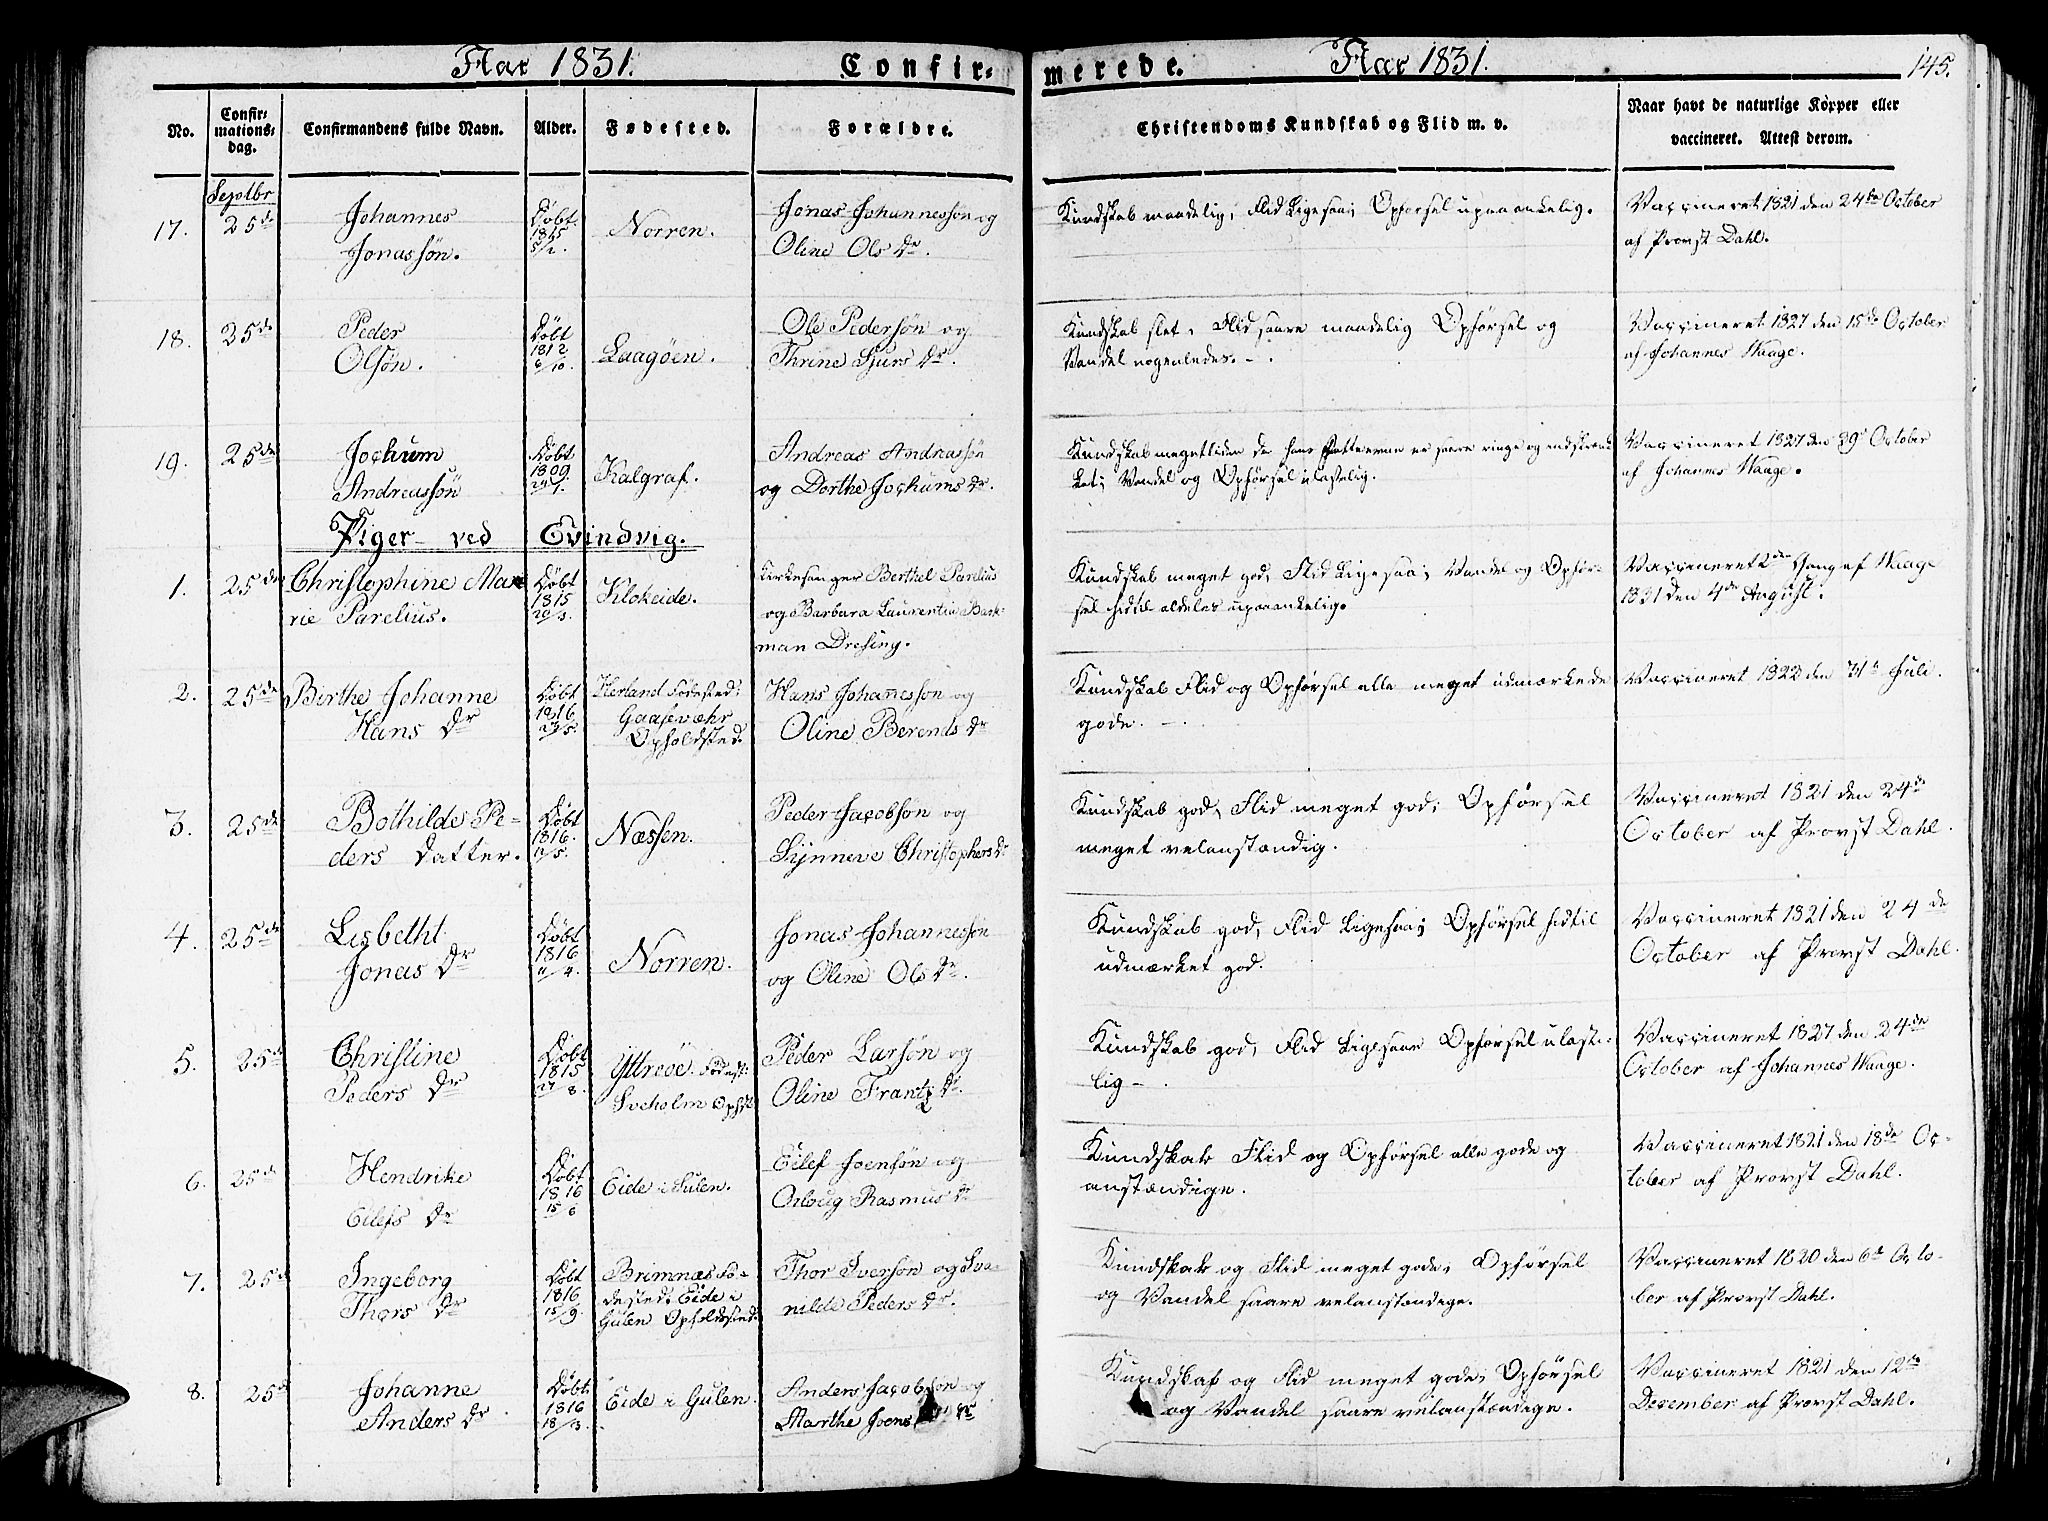 Aar 1831. Confir-merede. Aar 1831. 145.
No. Confir-mations-dag. Confirmandens fulde Navn. Alder. Fødested. Forældre. Christendoms Kundskab og Flid m. v. Naar havt de naturlige Kopper eller vaccineret. Attest derom.
Septbr
17. 25de Johannes Jonassøn. Døbt 1815 5/2. Norren. Jonas Johannessøn og Oline Ols Dr. Kundskab maadelig, Flid ligesaa; Opførsel upaaankelig. Vaccineret 1821 den 24de October af Provst Dahl.
18. 25de Peder Olsøn. Døbt 1812 6/10. Laagøen. Ole Pedersøn og Thrine Sjurs Dr. Kundskab slet, Flid saare maadelig Opførsel og Vandel nogenledes. Vaccineret 1827 den 15de October af Johannes Waage.
19. 25de Jochum Andreassøn Døbt 1809 Kalgraf. Andreas Andreassøn og Dorthe Jochums Dr. Kundskab meget liden da hans er saare ringe og indskrænket; Vandel og Opførsel ulastelig. Vaccineret 1827 den October af Johannes Waage.
Piger ved Evindvig.
1. 25de Christophine Marie Parelius. Døbt 1815 20/3. Klokeide. Kirkesanger Berthel Parelius og Barbara Laurentia Barkman Dresing. Kundskab meget god, Flid ligesaa; Vandel og Opførsel hidtil aldeles upaaankelig. Vaccineret 2den Gang af Waage 1831 den 4de August.
2. 25de Birthe Johanne Hans Dr Døbt 1816 23/5. Herland Fødested: Gaasevæhr Opholdsted. Hans Johannessøn og Oline Berends Dr Kundskab Flid og Opførsel alle meget udmærkede gode. Vaccineret 1822 den 31te Juli.
3. 25de Bothilde Peders Datter. Døbt 1816. Næssen. Peder Jacobsøn og Synneve Christophers Dr Kundskab god, Flid meget god; Opførsel meget velanstændig. Vaccineret 1821 den 24de October af Provst Dahl.
4. 25de Lisbetht Jonas Dr Døbt 1816 11/4. Norren. Jonas Johannessøn og Oline Ols Dr. Kundskab god, Flid ligesaa; Opførsel hidtil udmærket god. Vaccineret 1821 den 24de October af Provst Dahl.
5. 25de Christine Peders Dr Døbt 1815 27/8. Yttreøe. Fødest: Sveholm Opholdst Peder Larsøn og Oline Frantz Dr. Kundskab god, Flid ligesaa Opførsel ulastelig. Vaccineret 1827 den 24de October af Johannes Waage.
6. 25de Hendrike Eilefs Dr Døbt 1816 15/6 Eide i Gulen. Eilef Joensøn og Rasmus Dr Kundskab Flid og Opførsel alle gode og anstændige. Vaccineret 1821 den 18de October af Provst Dahl.
7. 25de Ingeborg Thors Dr Døbt 1816 15/9 Brimnæs Fødested: Eide i Gulen Opholdsted. Thor Iversøn og Svanilde Peders Dr. Kundskab og Flid meget gode; Opførsel og Vandel saare velanstændige. Vaccineret 1820 den 6te October af Provst Dahl.
8. 25de Johanne Anders Dr. Døbt 1816 18/3. Eide i Gulen. Anders Jacobsøn og Marthe Joens Dr Kundskab og Flid meget gode; Opførsel og Vandel saare velanstændige. Vaccineret 1821 den 12te December af Provst Dahl.